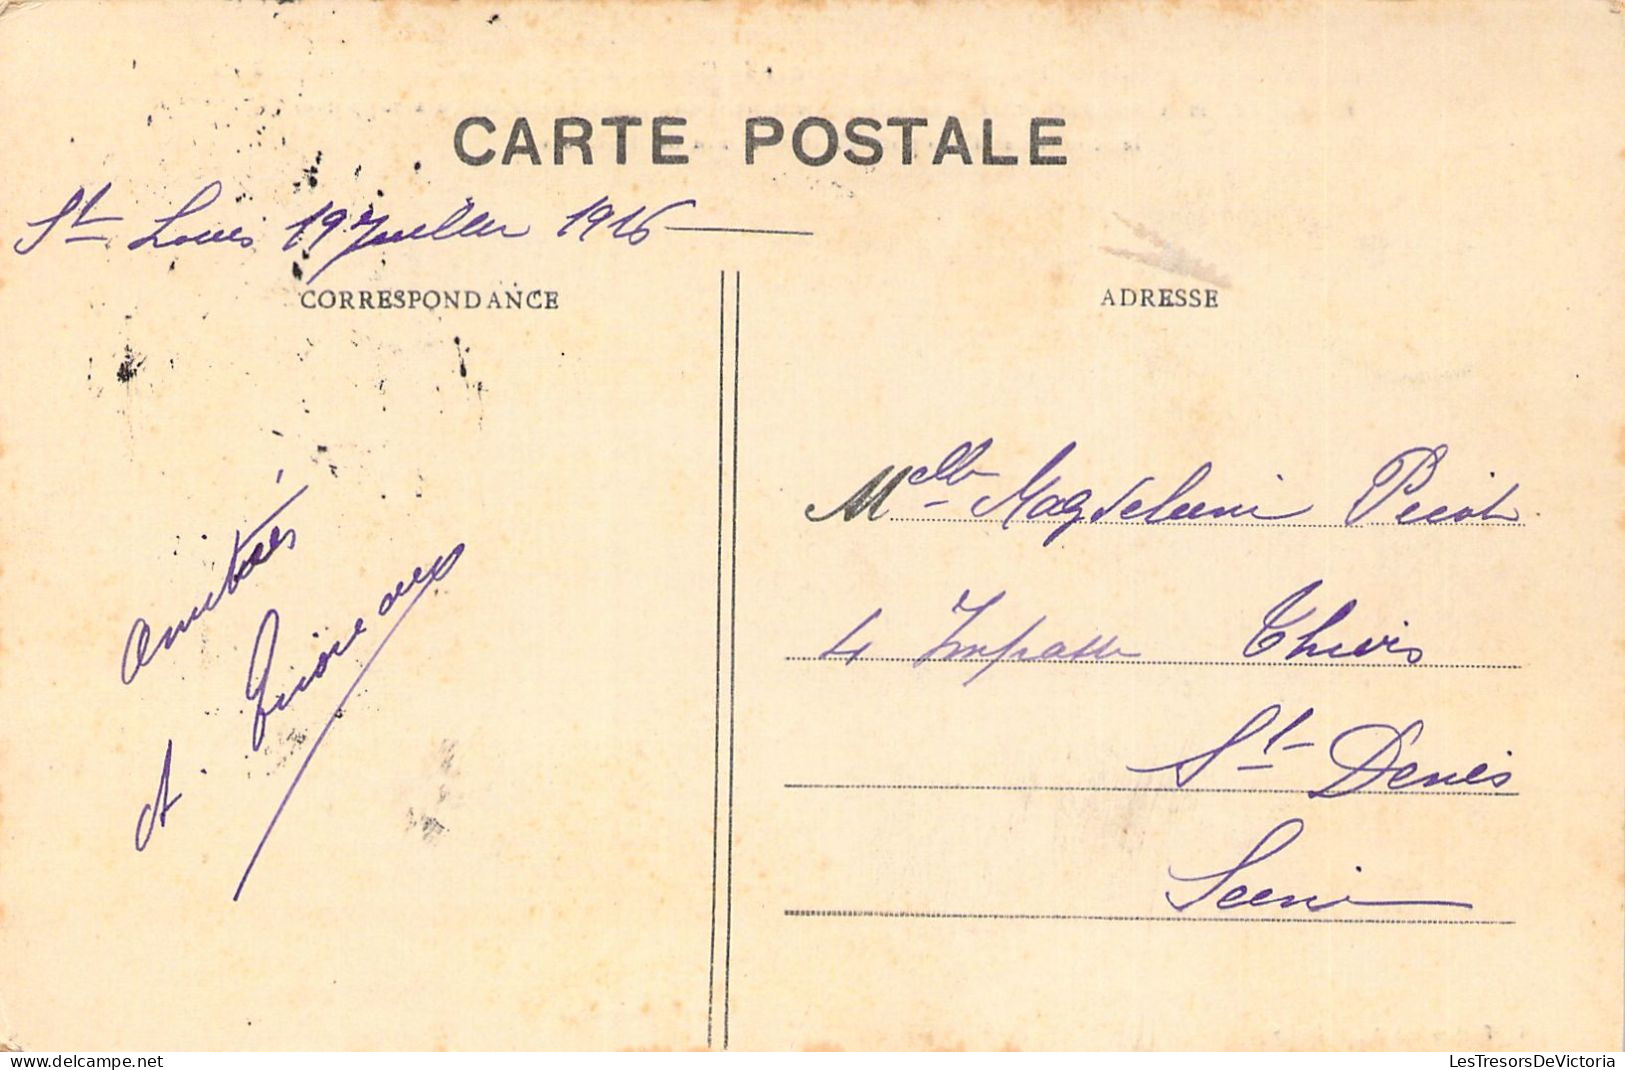 CARTE POSTALE
St Louis 19 Juillet 1916
CORRESPONDANCE
ADRESSE
Melle Magdeleine Picot
4 Impasse Thiers
St Denis
Seine
amitiés
A.
delcampe.net
LesTresorsDeVictoria